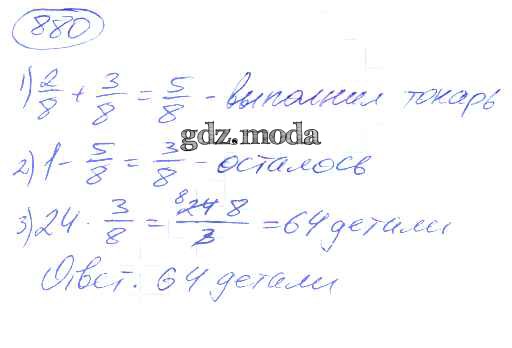 880
1) 2/8 + 3/8 = 5/8 - выполнил токарь
gdz.moda
2) 1 - 5/8 = 3/8 - осталось
3) 24 · 3/8 = 24 8/3 = 64 детали
8
Ответ. 64 детали